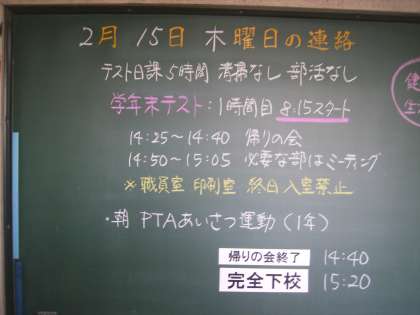 2月 15日 木曜日の連絡
テスト日課 5時間 清掃なし 部活なし
学年末テスト:1時間目 8:15スタート
14:25～14:40 帰りの会
14:50～15:05 必要な部はミーティング
※ 職員室 印刷室 終日 入室禁止
・朝 PTAあいさつ運動(1年)
帰りの会終了 14:40
完全下校 15:20